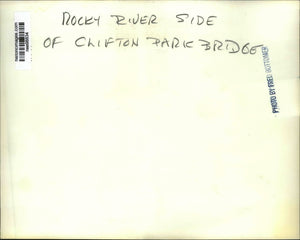 ROCKY RIVER SIDE
OF CLIFTON PARK BRIDGE
PHOTO BY FRED